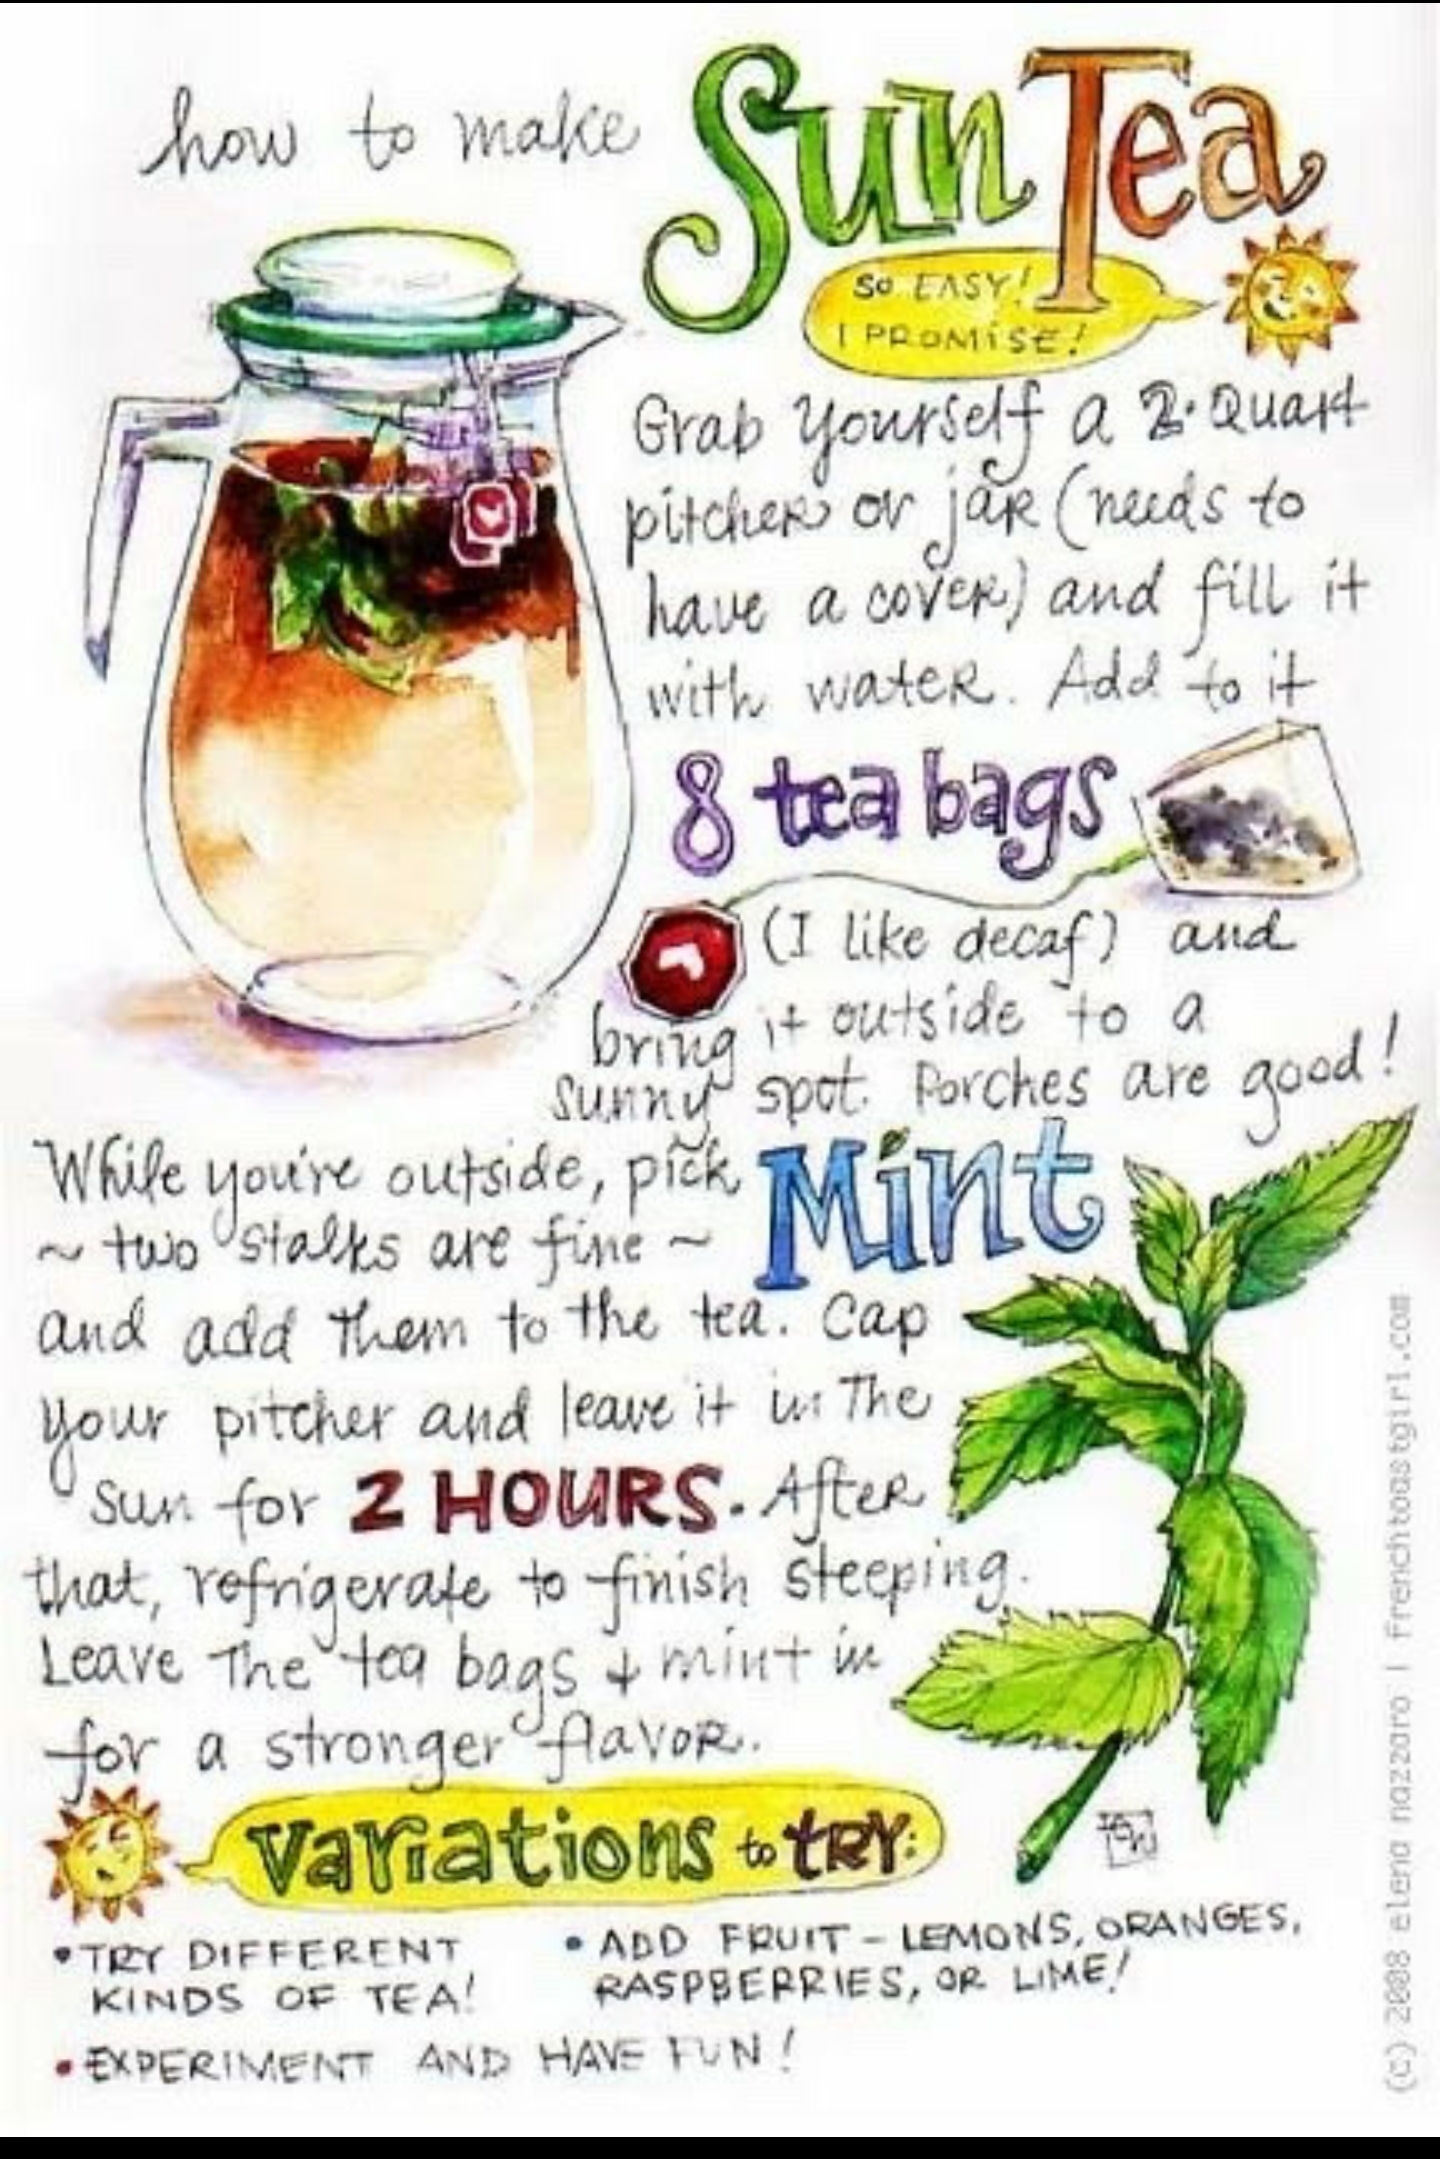 how to make Sun Tea
SO EASY!
I PROMISE!
Grab yourself a 2-Quart
pitcher or jar (needs to
have a cover) and fill it
with water. Add to it
8 tea bags
(I like decaf) and
bring it outside to a
sunny spot. Porches are good!
While you're outside, pick Mint
~ two stalks are fine ~
and add them to the tea. Cap
your pitcher and leave it in the
sun for 2 HOURS. After
that, refrigerate to finish steeping.
Leave the tea bags + mint in
for a stronger flavor.
variations to TRY:
• TRY DIFFERENT
KINDS OF TEA!
• ADD FRUIT – LEMONS, ORANGES,
RASPBERRIES, OR LIME!
• EXPERIMENT AND HAVE FUN!
(c) 2008 elena nazzaro | frenchtoastgirl.com